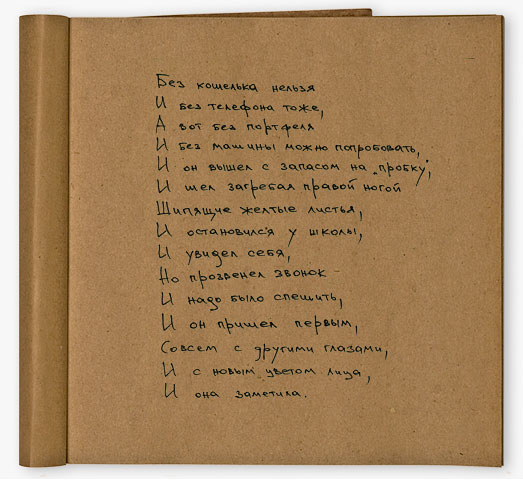 Без кошелька нельзя
И без телефона тоже,
А вот без портфеля
И без машины можно попробовать,
И он вышел с запасом на „пробку",
И шел загребал правой ногой
Шипящие желтые листья,
И остановился у школы,
И увидел себя,
Но прозвенел звонок
И надо было спешить,
И он пришел первым,
Совсем с другими глазами,
И с новым цветом лица,
И она заметила.